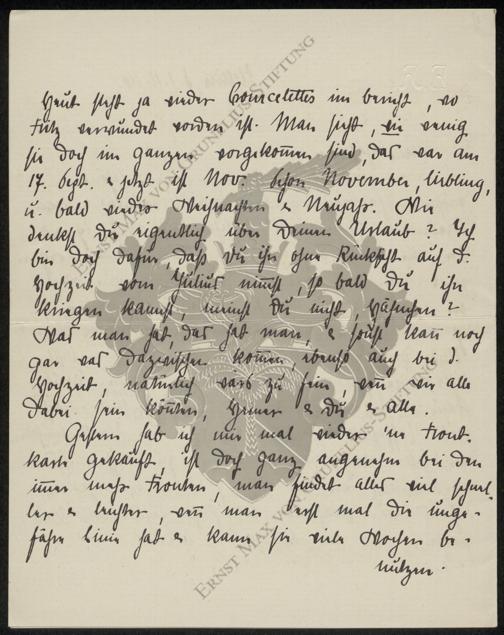 Heut steht ja wieder Courcelettes im Bericht, wo
Fritz verwundet worden ist. Man sieht, wie wenig
sie doch im ganzen vorgekommen sind, das war am
17. Sept. & jetzt ist Nov. schon November, Liebling,
u. bald wieder Weihnachten & Neujahr. Wie
denkst Du eigentlich über Deinen Urlaub? Ich
bin doch dafür, daß Du ihn ohne Rücksicht auf d.
Hochzeit vom Julius nimmst, so bald Du ihn
kriegen kannst, meinst Du nicht, Häschen?
Was man hat, das hat man, & sonst kann noch
gar was dazwischen kommen, ebenso auch bei d.
Hochzeit, natürlich wärs zu fein, wenn wir alle
dabei sein könnten, Heiner & Du & alle.
Gestern hab ich mir mal wieder 'ne Front-
karte gekauft, ist doch ganz angenehm bei den
immer mehr Fronten, man findet alles viel schnel-
ler & leichter, wenn man erst mal die unge-
fähre Linie hat & kann sie viele Wochen be-
nutzen.
ERNST MAX VON GRUNELIUS-STIFTUNG
ERNST MAX VON GRUNELIUS-STIFTUNG